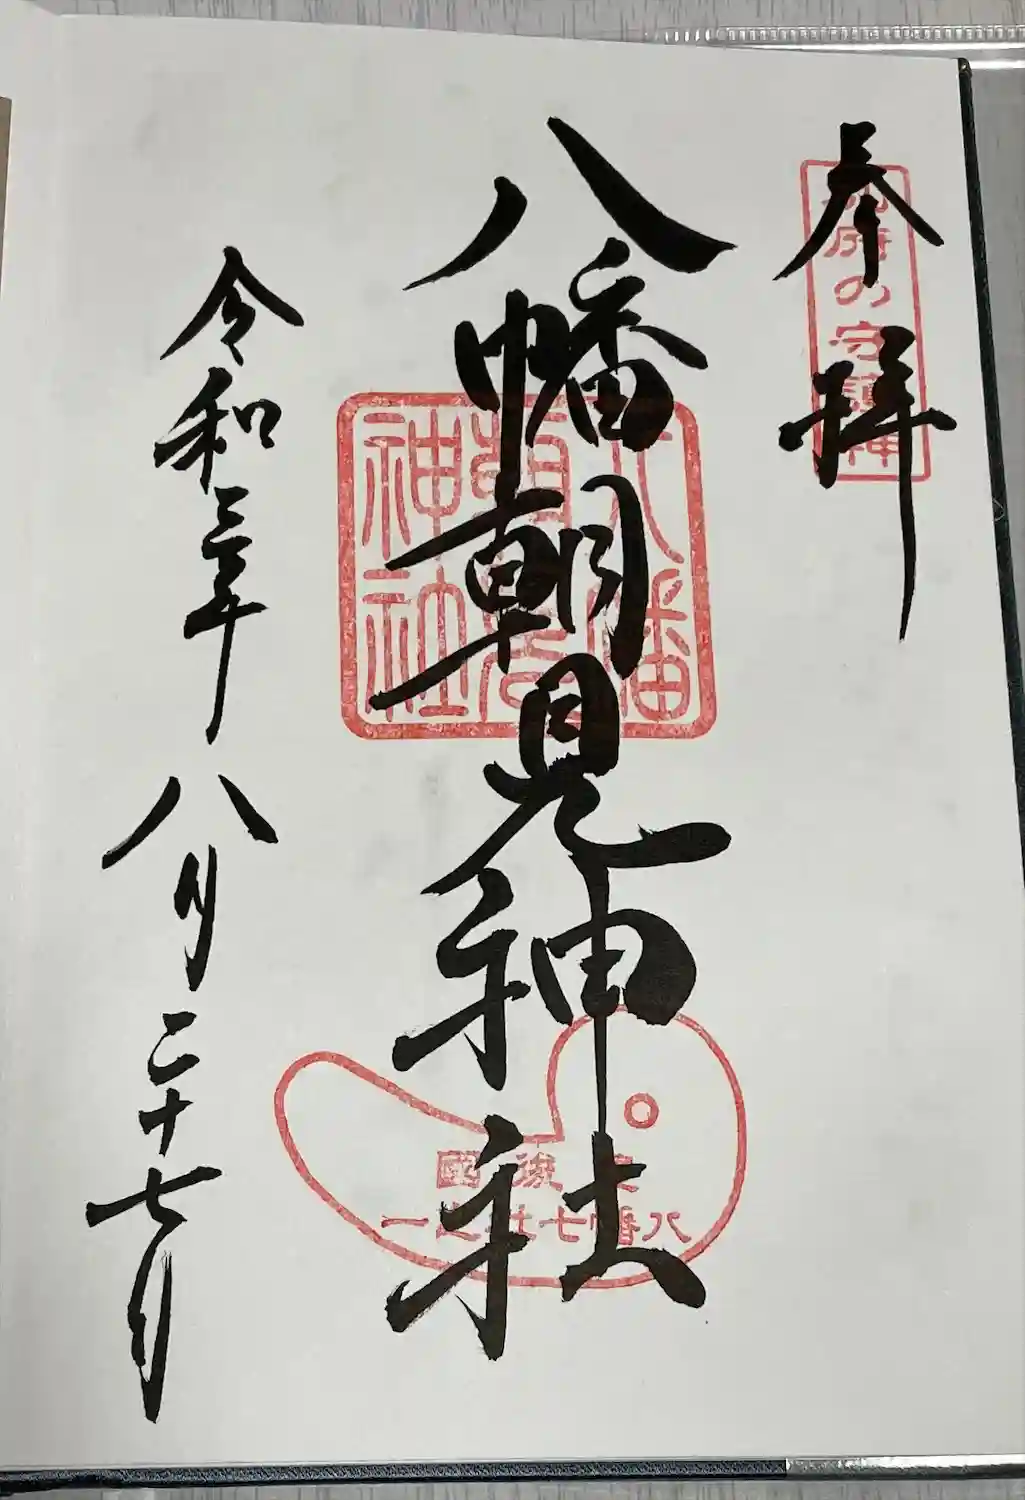 奉拝
八幡朝見神社
令和三年八月二十七日
八幡朝見神社
の守護神
國
八幡七社之一